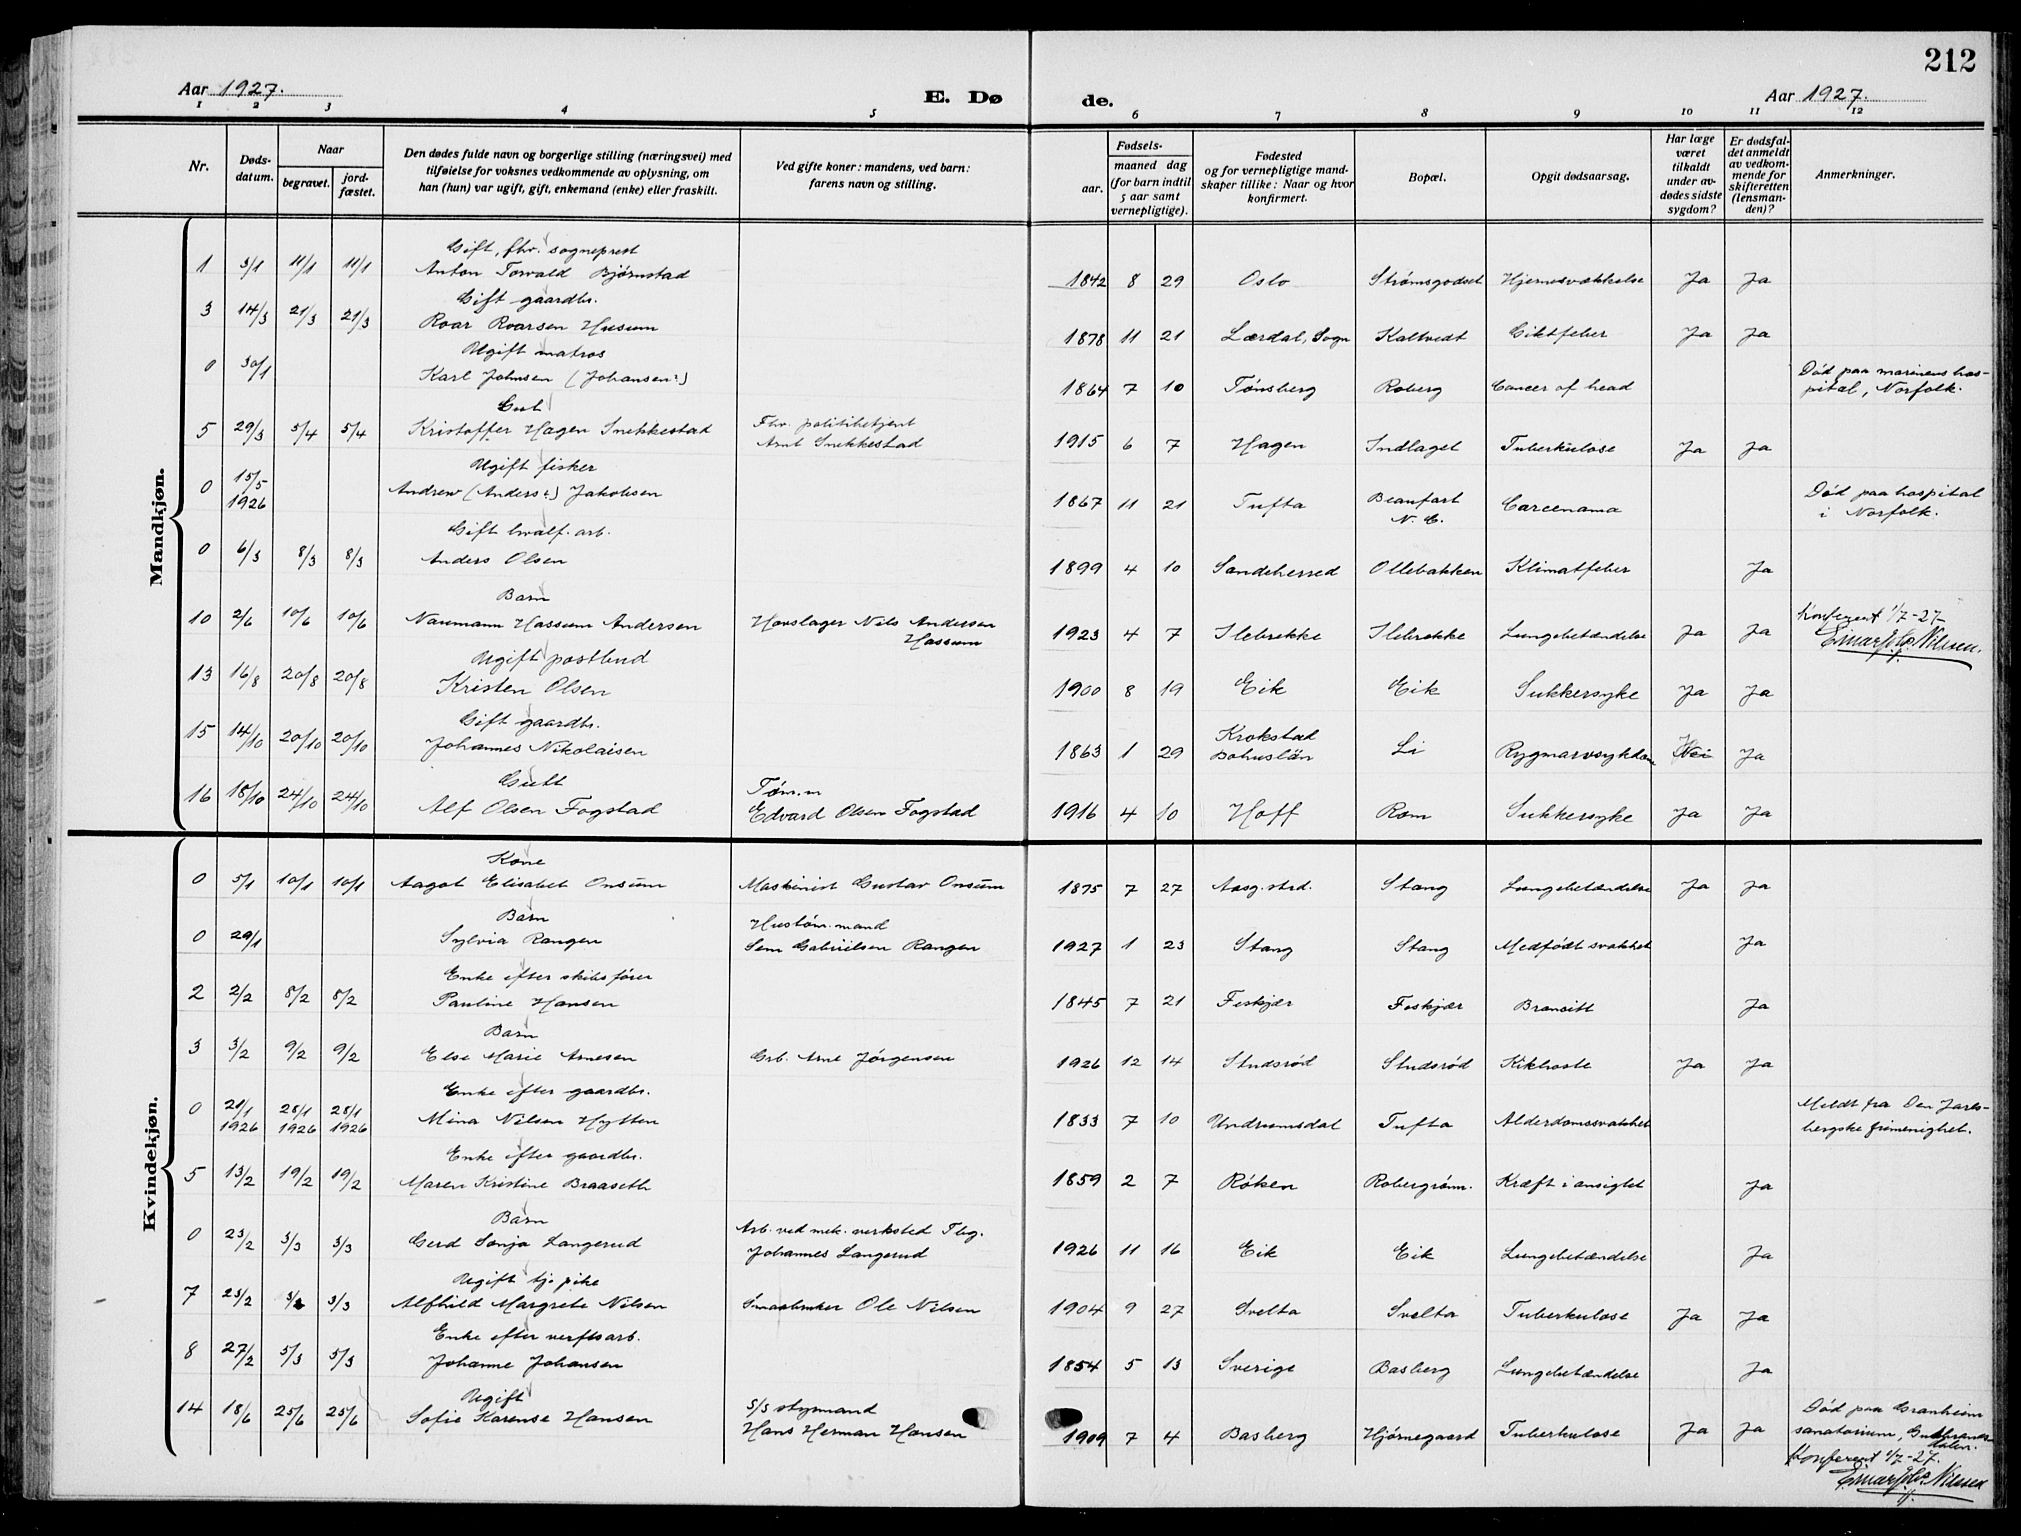 212
Aar 1927.
E. Dø
de.
Aar 1927.
1 2 3 4 5 6 7 8 9 10 11 12
Nr.
Døds-
datum.
Naar
begravet.
jord-
fæstet.
Den dødes fulde navn og borgerlige stilling (næringsvei) med
tilføielse for voksnes vedkommende av oplysning, om
han (hun) var ugift, gift, enkemand (enke) eller fraskilt.
Ved gifte koner: mandens, ved barn:
farens navn og stilling.
Fødsels-
aar.
maaned dag
(for barn indtil
5 aar samt
vernepligtige).
Fødested
og for vernepligtige mand-
skaper tillike: Naar og hvor
konfirmert.
Bopæl.
Opgit dødsaarsag.
Har læge
været
tilkaldt
under av-
dødes sidste
sygdom?
Er dødsfal-
det anmeldt
av vedkom-
mende for
skifteretten
(lensman-
den)?
Anmerkninger.
Mandkjøn.
Gift, fhv. sogneprest
1 3/1 11/1 11/1 Anton Torvald Bjørnstad 1842 8 29 Oslo Strømsgodset Hjernesvækkelse Ja Ja
Gift gaardbr.
3 14/3 21/3 21/3 Roar Roarsen Husum 1878 11 21 Lærdal, Sogn Kaltvedt Giktfeber Ja Ja
Ugift matros
0 30/1 Karl Johnsen (Johansen?) 1864 7 10 Tønsberg Roberg Cancer of head Død paa marinens hos-
pital, Norfolk.
Gut
5 29/3 5/4 5/4 Kristoffer Hagen Snekkestad Fhv. politibetjent
Arnt Snekkestad 1915 6 7 Hagen Indlaget Tuberkulose Ja Ja
Ugift fisker
0 15/5 1926 Andrew (Anders?) Jakobsen 1867 11 21 Tufta Beaufort
N. C. Carcenama Død paa hospital
i Norfolk.
Gift hvalf. arb.
0 6/3 8/3 8/3 Anders Olsen 1899 4 10 Sandeherred Ollebakken Klimatfeber Ja
Barn
10 2/6 10/6 10/6 Naumann Hassum Andersen Hovslager Nils Andersen
Hassum 1923 4 7 Ilebrekke Ilebrekke Lungebetændelse Ja Ja Konferert 1/7-27
Ugift postbud
13 16/8 20/8 20/8 Kristen Olsen 1900 8 19 Eik Eik Sukkersyke Ja Ja
Gift gaardbr.
15 14/10 20/10 20/10 Johannes Nikolaisen 1863 1 29 Krokstad
Bohuslän Li Rygmarvsykdom Nei Ja
Gutt
16 18/10 24/10 24/10 Alf Olsen Fogstad Tøm.m
Edvard Olsen Fogstad 1916 4 10 Hoff Rom Sukkersyke Ja Ja
Kvindekjøn.
Kone
0 5/1 10/1 10/1 Aagot Elisabet Onsum Maskinist Gustav Onsum 1875 7 27 Aasg.strd. Stang Lungebetændelse Ja Ja
Barn
0 29/1 Sylvia Rangen Hustøm.mand
Sem Gabrielsen Rangen 1927 1 23 Stang Stang Medfødt svakhet Ja
Enke efter skibsfører
2 2/2 8/2 8/2 Pauline Hansen 1845 7 21 Feskjær Feskjær Broncitt Ja
Barn
3 3/2 9/2 9/2 Else Marie Arnesen Grb. Arne Jørgensen 1926 12 14 Studsrød Studsrød Kikhoste Ja Ja
Enke efter gaardbr.
0 21/1 1926 28/1 1926 28/1 1926 Mina Nilsen Hytten 1833 7 10 Undrumsdal Tufta Alderdomssvakhet Meldt fra Den Jarls-
bergske frimenighet.
Enke efter gaardbr.
5 13/2 19/2 19/2 Maren Kristine Braaseth 1859 2 7 Røken Robergrønn. Kræft i ansigtet Ja
Barn
0 23/2 3/3 3/3 Gerd Sonja Langerud Arb. ved mek. verksted Tbg.
Johannes Langerud 1926 11 16 Eik Eik Lungebetændelse Ja
Ugift tj. pike
7 23/2 3/3 3/3 Alfhild Margrete Nilsen Smaabruker Ole Nilsen 1904 9 27 Svelta Svelta Tuberkulose Ja Ja
Enke efter verftsarb.
8 27/2 5/3 5/3 Johanne Johansen 1854 5 13 Sverige Basberg Lungebetændelse Ja
Ugift
14 18/6 25/6 25/6 Sofie Karense Hansen S/S styrmand
Hans Herman Hansen 1909 7 4 Basberg Hjørnegaard Tuberkulose Ja Ja Død paa Granheim
sanatorium, Gudbrands-
dalen.
Konferert 1/7-27.